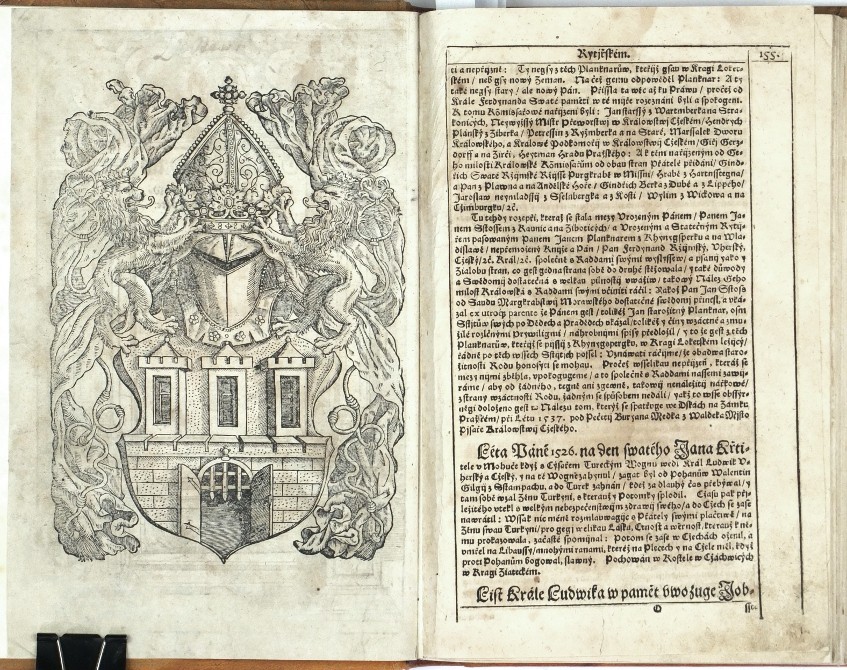 Rytjřském. 155.
ti a nepřijzně: Ty negsy z těch Planknarůw, kteřijž gsau w Kragi Loket-
ském / neb gsy nowý Zeman. Na což gemu odpowěděl Planknar: A ty
také negsy starý / ale nowý Pán. Přissla ta wěc až ku Práwu / pročež od
Krále Ferdynanda Swaté paměti w té mijře rozeznáni byli a spokogeni.
K tomu Kōmissařowé nařijzeni byli: Jan starssý z Wartmberka na Stra-
konicých, Neywyssý Mistr Přeworstwij w Králowstwij Cžeském / Hendrych
Plánský z Žiberka / Petr
Králowského, a Kralowé Podkomořij w Králowstwij Cžeském /
a na Žirči, Heytman Hradu Pražského: A k těm nařijzeným od Ge-
ho milosti Králowské Kōmissařům od obau stran Přátelé přidáni / Gind-
řich Swaté Ržijmské Ržijsse Purgkrabě w Missni / Hrabě z Hartnsseegna /
a Pan z Plawna a na Andělské Hoře / Gindřich Berka z Dubé a z Lippého /
Jaroslaw neymladssý z Sselnbergka a z Kosti / Wylim z Wickowa a na
Cymburgku / 2c.
Tu tehdy rozepři, kteráž se stala mezy Vrozeným Pánem / Panem Ja-
nem Sstossem z Kaunic a na Ziboticých / a Vrozeným a Statečným Rytij-
řem pasowaným Panem Janem Planknarem z Khynygsperku a na Wla-
dislawě / nepřemožený Knijže a Pán / Pan Ferdynand Ržijmský, Vherský,
Cžeský / 2c. Král / 2c. společně s Raddami swými wyslyssew / a psaný yako y
Žialobu stran, co gest gedna strana sobě do druhé stěžowala / y také důwody
a Swědomij dostatečná s welkau pilnostij vwážiw / takowý Nález Geho
milost Králowská s Raddami swými včiniti ráčil: Nakož Pan Jan Sstoss
od Saudu Margkrabstwij Morawského dostatečné swědomij přinesl, a vká-
zal ex utroq; parente že Pánem gest / tolikéž Jan starožitný Planknar, osm
Sstijtůw swých po Dědech a Pradědech okázal / tolikéž y činy wzáctné a zmu-
žilé rozličnými Prywiligimi / náhrobnými spisy předložil / y to že gest z těch
Planknarůw, kteřijž se pijssij z Khynygspergku, w Kragi Loketském ležijcý /
řádně po těch wssech Sstijtjch possel: Vznáwati ráčijme / že obadwa staro-
žitnosti Rodu honosyti se mohau. Pročež wsselikau nepřijzeň, kteráž se
mezy nimi zběhla, vpokogugeme / a to společně s Raddami nassemi zawij-
ráme / aby od žádného, tegně ani zgewně, takowý nenáležitý nářkowé /
z strany wzáctnosti Rodu, žádným se spůsobem nedáli / yakž to wsse obssijr-
něgi doloženo gest w Nálezu tom, kterýž se spatřuge we Dskách na Zámku
Pražském / při Létu 1537. pod Pečetij Burjana Medka z Waldeka Mijsto
Pijsaře Králowstwij Cžeského.
Léta Páně 1526. na den swatého Jana Křti-
tele w Mohuče když s Cýsařem Tureckým Wognu wedl Král Ludwik V-
herský a Cžeský, y na té Wogně zahynul / zagat byl od Pohanůw Walentin
Gilgij z Sstampachu, a do Turek zahnán / kdež za dlauhý čas přebýwal / y
tam sobě wzal Ženu Turkyni, s kterauž y Potomky splodil. Cžasu pak při-
ležitého vtekl s welkým nebezpečenstwijm zdrawij swého / a do Cžech se zase
nawrátil: Wssak nic méně rozmlauwagijc s Přátely swými plačtiwě / na
Ženu swau Turkyni / pro gegij welikau Lásku, Ctnost a wěrnost, kterauž k ně-
mu prokazowala, začasté spomijnal: Potom se zase w Cžechách oženil, a
vmřel na Libaussy / mnohými ranami, kteréž na Plecech y na Cžele měl, když
proti Pohanům bogowal, slawný. Pochowán w Kostele w Cžachwicých
w Kragi Žiateckém.
List Krále Ludwika w pamět vwozuge Job-
sst.